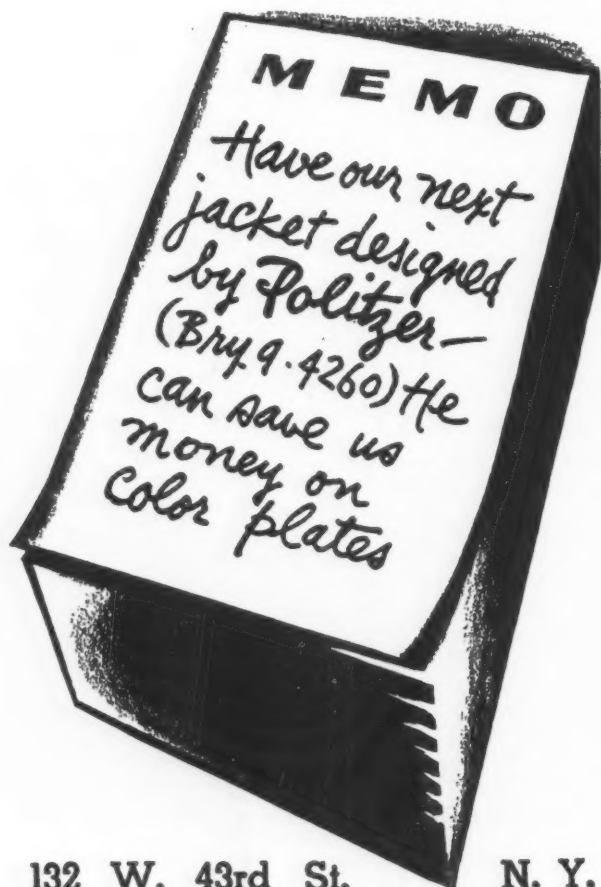 MEMO
Have our next
jacket designed
by Politzer—
(Bry. 9-4260) He
can save us
money on
color plates
132 W. 43rd St. N.Y.